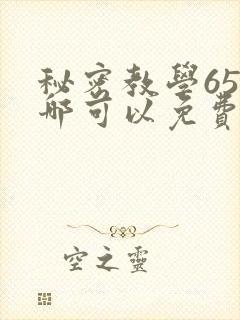 秘密教學65
哪可以免費
空之靈